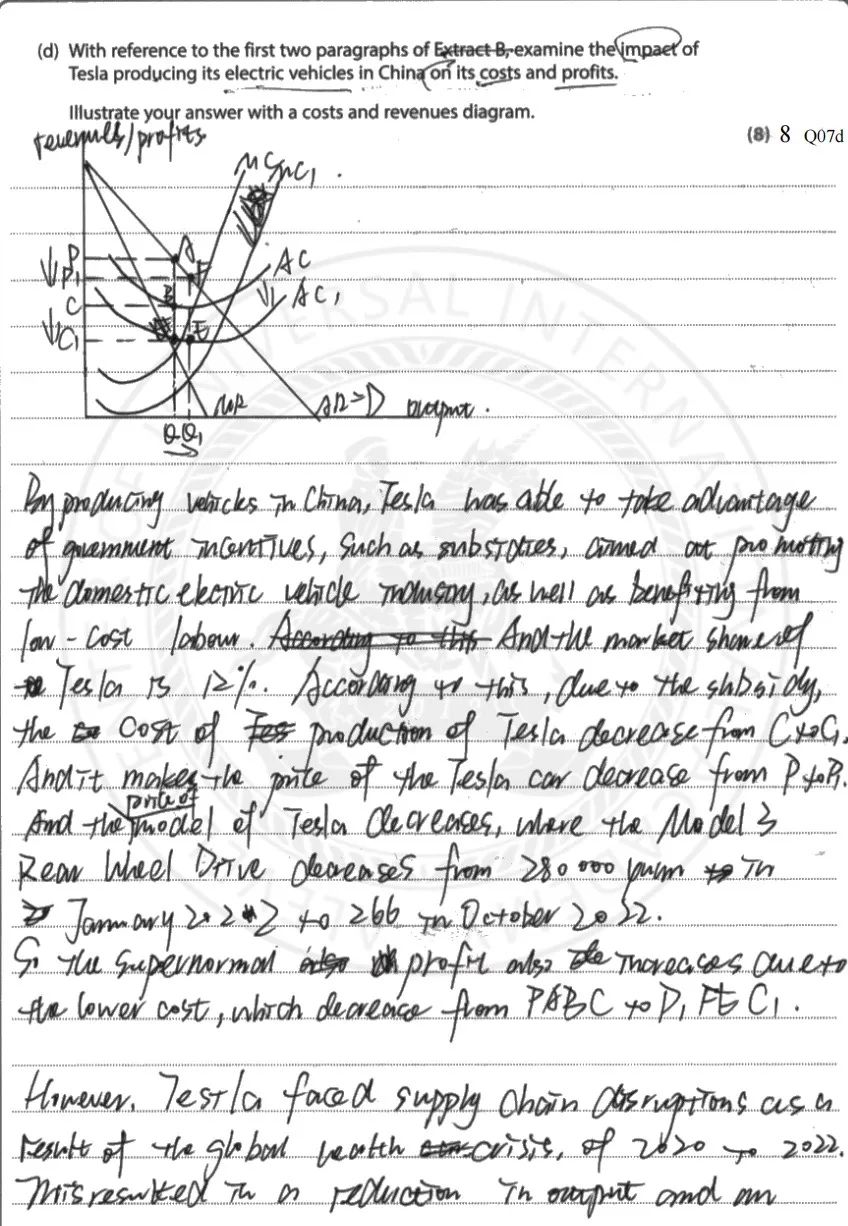 (d) With reference to the first two paragraphs of Extract B, examine the impact of
Tesla producing its electric vehicles in China on its costs and profits.
Illustrate your answer with a costs and revenues diagram.
(8) 8 Q07d
revenues/profits
MC MC1
P A
P1 F
AC
C B
AC1
C1 E
MR AR=D output.
Q Q1
By producing vehicles in China, Tesla was able to take advantage
of government incentives, such as subsidies, aimed at promoting
the domestic electric vehicle industry, as well as benefiting from
low-cost labour. According to this And the market share of
Tesla is 12%. According to this, due to the subsidy,
the cost of Tes production of Tesla decrease from C to C1.
And it makes the price of the Tesla car decrease from P to P1.
price of
And the model of Tesla decreases, where the Model 3
Rear Wheel Drive decreases from 280 000 yuan in
January 2022 to 266 in October 2022.
So the supernormal also profit also increases due to
the lower cost, which decrease from PABC to P1FEC1.
However, Tesla faced supply chain disruptions as a
result of the global health crisis, of 2020 to 2022.
This resulted in a reduction in output and an